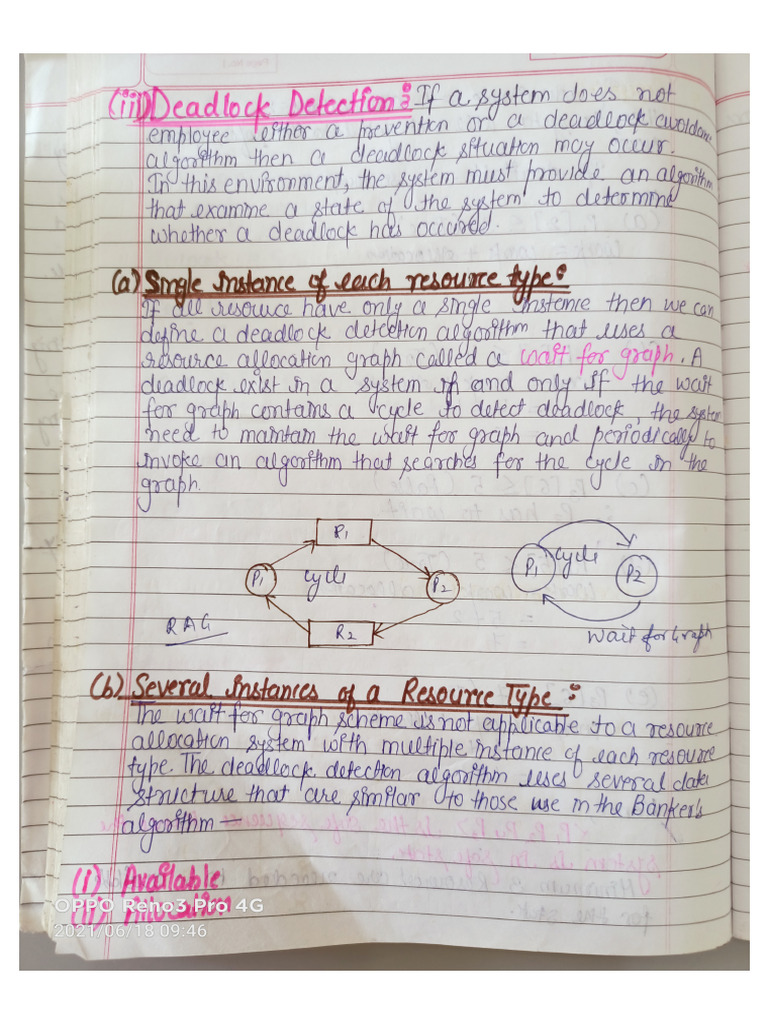 (iii) Deadlock Detection : If a system does not
employee either a prevention or a deadlock avoidanc
algorithm then a deadlock situation may occur.
In this environment, the system must provide an algorithm
that examine a state of the system to determine
whether a deadlock has occured.
(a) Single instance of each resource type :
If all resource have only a single instance then we can
define a deadlock detection algorithm that uses a
resource allocation graph called a wait for graph. A
deadlock exist in a system if and only if the wait
for graph contains a cycle to detect deadlock, the system
need to maintain the wait for graph and periodically to
invoke an algorithm that searches for the cycle in the
graph.
R1
P1 cycle P2
R2
RAG
P1 cycle P2
Wait for Graph
(b) Several instances of a Resource Type :
The wait for graph scheme is not applicable to a resource
allocation system with multiple instance of each resource
type. The deadlock detection algorithm uses several data
structure that are similar to those use in the Banker's
algorithm —
(i) Available
(ii) Allocation
OPPO Reno3 Pro 4G
2021/06/18 09:46